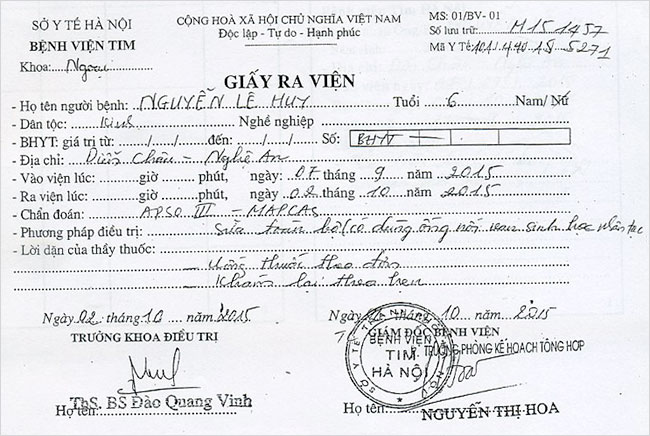 SỞ Y TẾ HÀ NỘI
BỆNH VIỆN TIM
Khoa: Ngoại
CỘNG HOÀ XÃ HỘI CHỦ NGHĨA VIỆT NAM
Độc lập - Tự do - Hạnh phúc
MS: 01/BV- 01
Số lưu trữ: M151457
Mã Y Tế
GIẤY RA VIỆN
- Họ tên người bệnh: NGUYỄN LÊ HUY Tuổi 6 Nam/ Nữ
- Dân tộc: Kinh Nghề nghiệp
- BHYT: giá trị từ: / / đến: / / Số: BHYT
- Địa chỉ: Diễn Châu - Nghệ An
- Vào viện lúc: giờ phút, ngày: 07 tháng 9 năm 2015
- Ra viện lúc: giờ phút, ngày 02 tháng 10 năm 2015
- Chẩn đoán: APSO III - MAPCAs
- Phương pháp điều trị: Sửa toàn bộ (có dùng ống nối van sinh học nhân tạo
- Lời dặn của thầy thuốc:
- Uống thuốc theo đơn
- Khám lại theo hẹn
Ngày 02 tháng 10 năm 2015
TRƯỞNG KHOA ĐIỀU TRỊ
Họ tên:
ThS. BS Đào Quang Vinh
tháng 10 năm 2015
GIÁM ĐỐC BỆNH VIỆN
TRƯỞNG PHÒNG KẾ HOẠCH TỔNG HỢP
SỞ Y TẾ T.P HÀ NỘI
BỆNH VIỆN
TIM
HÀ NỘI
Họ tên:
NGUYỄN THỊ HOA